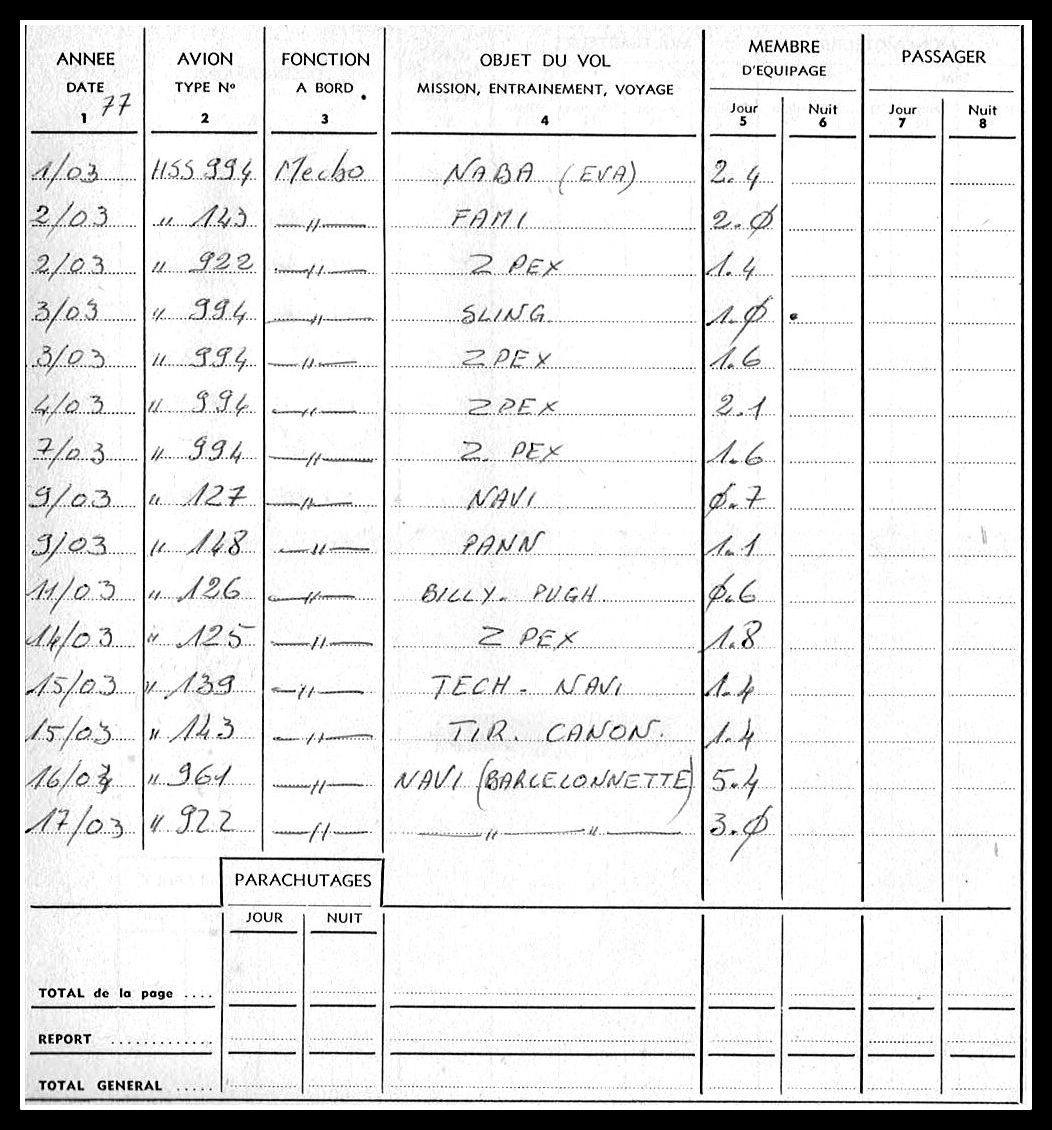 ANNEE AVION FONCTION OBJET DU VOL MEMBRE D'EQUIPAGE PASSAGER
DATE TYPE No A BORD MISSION, ENTRAINEMENT, VOYAGE Jour Nuit Jour Nuit
77
1 2 3 4 5 6 7 8
1/03 HSS 994 Mecbo NABA (EVA) 2.4
2/03 " 143 —"— FAMI 2.Ø
2/03 " 922 —"— Z PEX 1.4
3/03 " 994 —"— SLING 1.Ø
3/03 " 994 —"— ZPEX 1.6
4/03 " 994 —"— ZPEX 2.1
7/03 " 994 —"— Z. PEX 1.6
9/03 " 127 —"— NAVI Ø.7
9/03 " 148 —"— PANN 1.1
11/03 " 126 —"— BILLY. PUGH Ø.6
14/03 " 125 —"— Z PEX 1.8
15/03 " 139 —"— TECH. NAVI 1.4
15/03 " 143 —"— TIR. CANON. 1.4
16/03 " 961 —"— NAVI (BARCELONNETTE) 5.4
17/03 " 922 —"— —"—"— 3.Ø
PARACHUTAGES
JOUR NUIT
TOTAL de la page ....
REPORT ............
TOTAL GENERAL .....